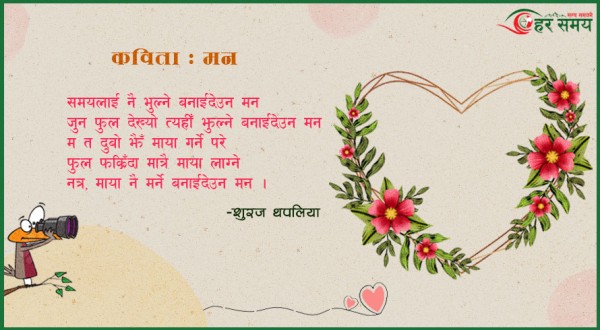 हर समय
कविता : मन
समयलाई नै भुल्ने बनाईदेउन मन
जुन फुल देख्यो त्यहीँ झुल्ने बनाईदेउन मन
म त दुबो झैँ माया गर्ने परे
फुल फक्रिँदा मात्रै माया लाग्ने
नत्र, माया नै मर्ने बनाईदेउन मन ।
-शुरज थपलिया